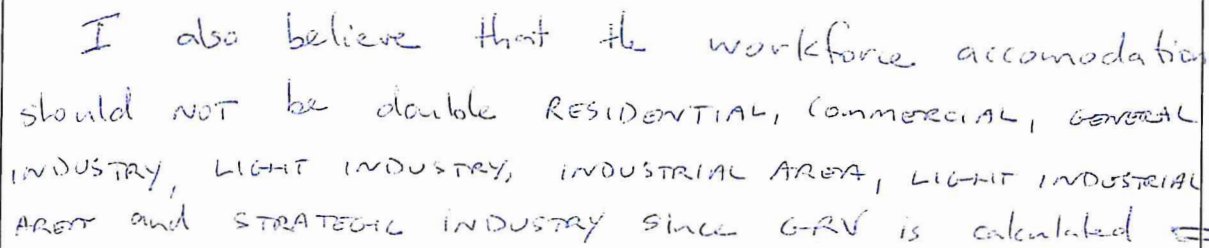 I also believe that the workforce accomodation
should NOT be double RESIDENTIAL, COMMERCIAL, GENERAL
INDUSTRY, LIGHT INDUSTRY, INDUSTRIAL AREA, LIGHT INDUSTRIAL
AREA and STRATEGIC INDUSTRY since GRV is calculated =